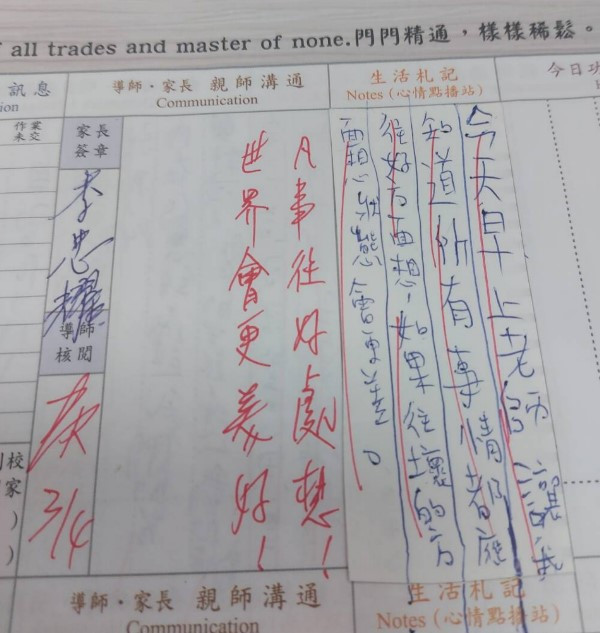 all trades and master of none.門門精通，樣樣稀鬆。
訊息
導師‧家長 親師溝通
Communication
生活札記
Notes (心情點播站)
今日
作業
未交
家長
簽章
導師
核閱
3/4
今天早上老師讓我
知道所有事情都應
往好方面想，如果往壞的方
面想狀態會更差。
凡事往好處想！
世界會更美好！
校
家
導師‧家長 親師溝通
Communication
生活札記
Notes (心情點播站)